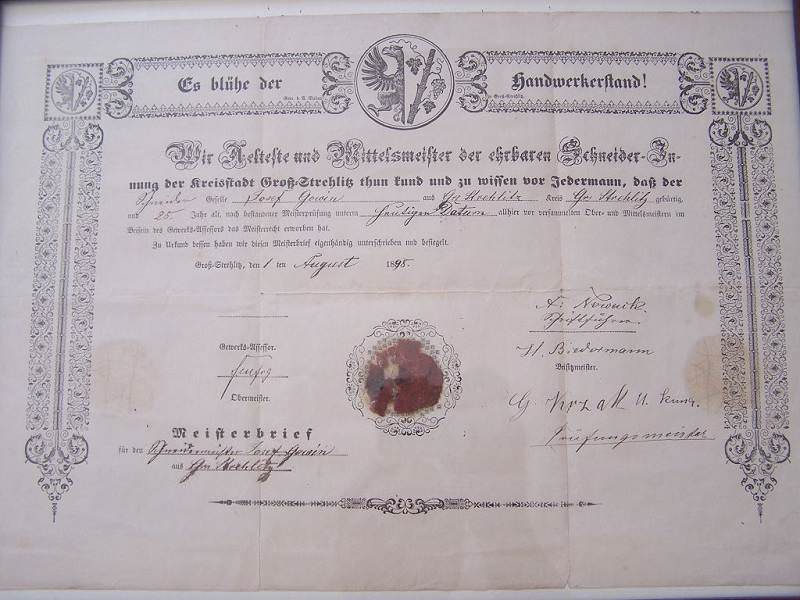 Es blühe der Handwerkerstand!
Wir Aelteste und Mittelsmeister der ehrbaren Schneider-In-
nung der Kreisstadt Groß-Strehlitz thun kund und zu wissen vor Jedermann, daß der
Schneider Geselle Josef Gowin aus Gr Strehlitz Kreis Gr Strehlitz gebürtig,
und 25 Jahr alt, nach bestandener Meisterprüfung unterm heutigen Datum allhier vor versammelten Ober- und Mittelsmeistern im
Beisein des Gewerks-Assessors das Meisterrecht erworben hat.
Zu Urkund dessen haben wir diesen Meisterbrief eigenhändig unterschrieben und besiegelt.
Groß-Strehlitz, den 1 ten August 1898.
A. Nownik
Schriftführer
Gewerks-Assessor.
H. Biedermann
Beisitzmeister.
Obermeister.
G. Krzak u.
Prüfungsmeister
Meisterbrief
für den Schneidermeister Josef Gowin
aus Gr Strehlitz